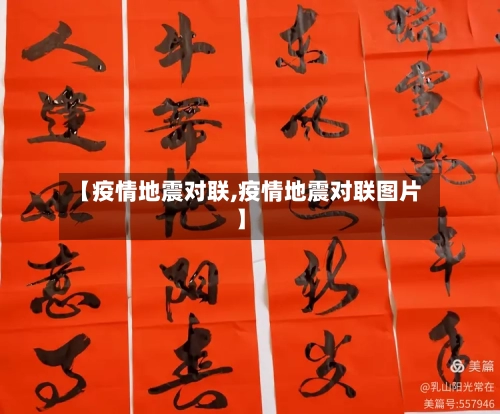 瑞雪兆丰年
东风新岁
牛舞艳阳春
人逢如意事
【疫情地震对联,疫情地震对联图片
】
美篇
@乳山阳光常在
美篇号:557946